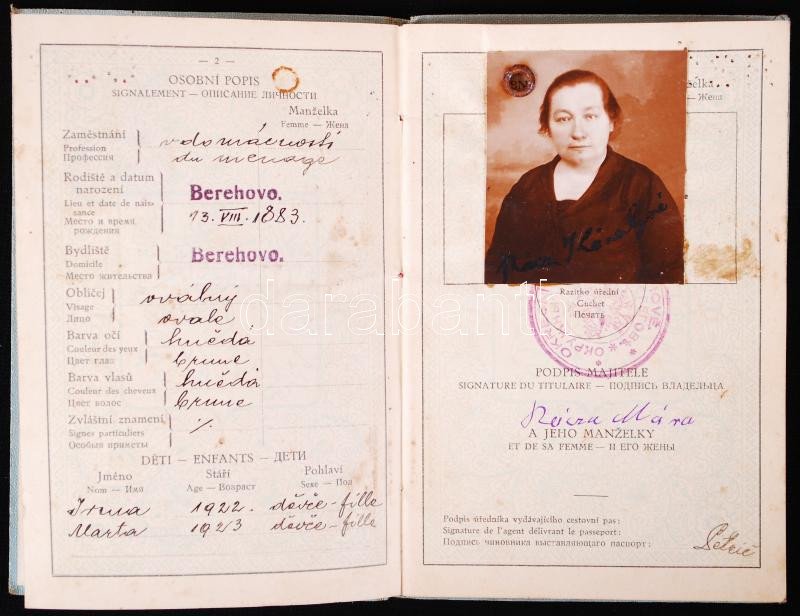 — 2 —
OSOBNÍ POPIS
SIGNALEMENT — ОПИСАНИЕ ЛИЧНОСТИ
Manželka
Femme — Жена
Zaměstnání
Profession
Профессия
v domácnosti
du menage
Rodiště a datum
narození
Lieu et date de nais-
sance
Место и время
рождения
Berehovo.
13. VIII. 1883.
Bydliště
Domicile
Место жительства
Berehovo.
Obličej
Visage
Лицо
oválný
ovale
Barva očí
Couleur des yeux
Цвет глаз
hnědá
brune
Barva vlasů
Couleur des cheveux
Цвет волос
hnědá
brune
Zvláštní znamení
Signes particuliers
Особыя приметы
%
DĚTI — ENFANTS — ДЕТИ
Jméno Stáří Pohlaví
Nom — Имя Age — Возраст Sexe — Пол
Irma 1922 děvče - fille
Marta 1923 děvče - fille
— Жена
Razítko úřední
Cachet
Печать
PODPIS MAJITELE
SIGNATURE DU TITULAIRE — ПОДПИСЬ ВЛАДЕЛЬЦА
A JEHO MANŽELKY
ET DE SA FEMME — И ЕГО ЖЕНЫ
Podpis úředníka vydávajícího cestovní pas:
Signature de l'agent délivrant le passeport:
Подпись чиновника выставляющаго паспорт:
darabanth